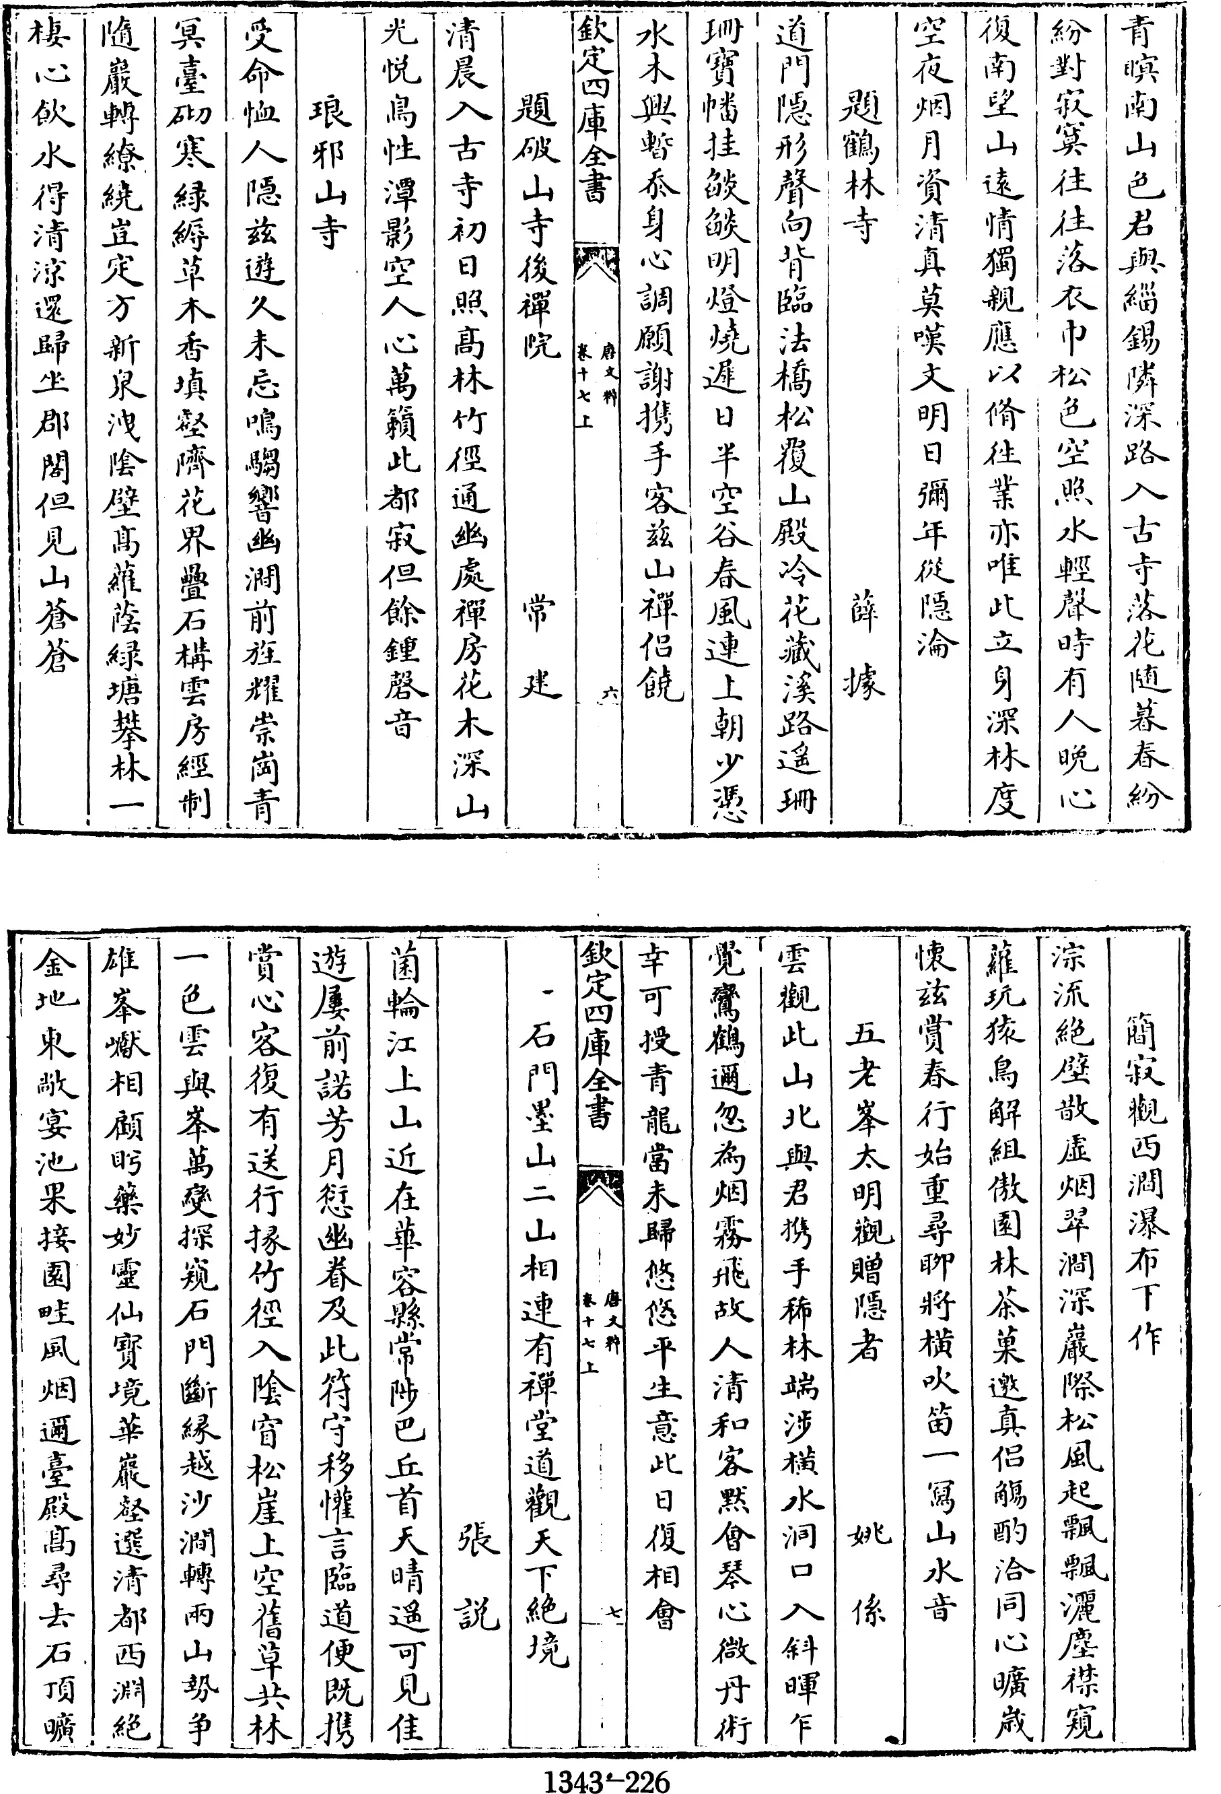 青暝南山色君與緇錫隣深路入古寺落花隨暮春紛
紛對寂寞往往落衣巾松色空照水輕聲時有人晚心
復南望山遠情獨親應以脩徃業亦唯此立身深林度
空夜烟月資清真莫嘆文明日彌年從隱淪
題鶴林寺 薛據
道門隱形聲向背臨法橋松覆山殿冷花藏溪路遥珊
珊寶幡挂燄燄明燈燒遲日半空谷春風連上朝少憑
水木興暫忝身心調願謝携手客兹山禪侶饒
欽定四庫全書 唐文粹 卷十七上 六
題破山寺後禪院 常建
清晨入古寺初日照髙林竹徑通幽處禪房花木深山
光悦鳥性潭影空人心萬籟此都寂但餘鍾磬音
琅邪山寺
受命恤人隱兹遊久未忘鳴騶響幽澗前旌耀崇崗青
冥臺砌寒緑縟草木香填壑隮花界疊石構雲房經制
隨巖轉繚繞豈定方新泉洩陰壁髙蘿蔭緑塘攀林一
棲心飲水得清涼還歸坐郡閣但見山蒼蒼
簡寂觀西澗瀑布下作
淙流絶壁散虚烟翠澗深巖際松風起飄飄灑塵襟窺
蘿玩猿鳥解組傲園林茶菓邀真侶觴酌洽同心曠歳
懷兹賞春行始重尋聊將横吹笛一冩山水音
五老峯太明觀贈隱者 姚係
雲觀此山北與君携手稀林端涉横水洞口入斜暉乍
覺鸞鶴邇忽為烟霧飛故人清和客黙㑹琴心微丹術
幸可授青龍當未歸悠悠平生意此日復相㑹
欽定四庫全書 唐文粹 卷十七上 七
石門墨山二山相連有禪堂道觀天下絶境
張説
菌輪江上山近在華容縣常陟巴丘首天晴遥可見佳
遊屢前諾芳月愆幽眷及此符守移懽言臨道便既携
賞心客復有送行掾竹徑入陰窅松崖上空蒨草共林
一色雲與峯萬變探窺石門斷縁越沙澗轉兩山勢争
雄峯巘相顧眄藥妙靈仙寳境華巖壑選清都西淵絶
金地東敞宴池果接園畦風烟邇臺殿髙尋去石頂曠
1343-226